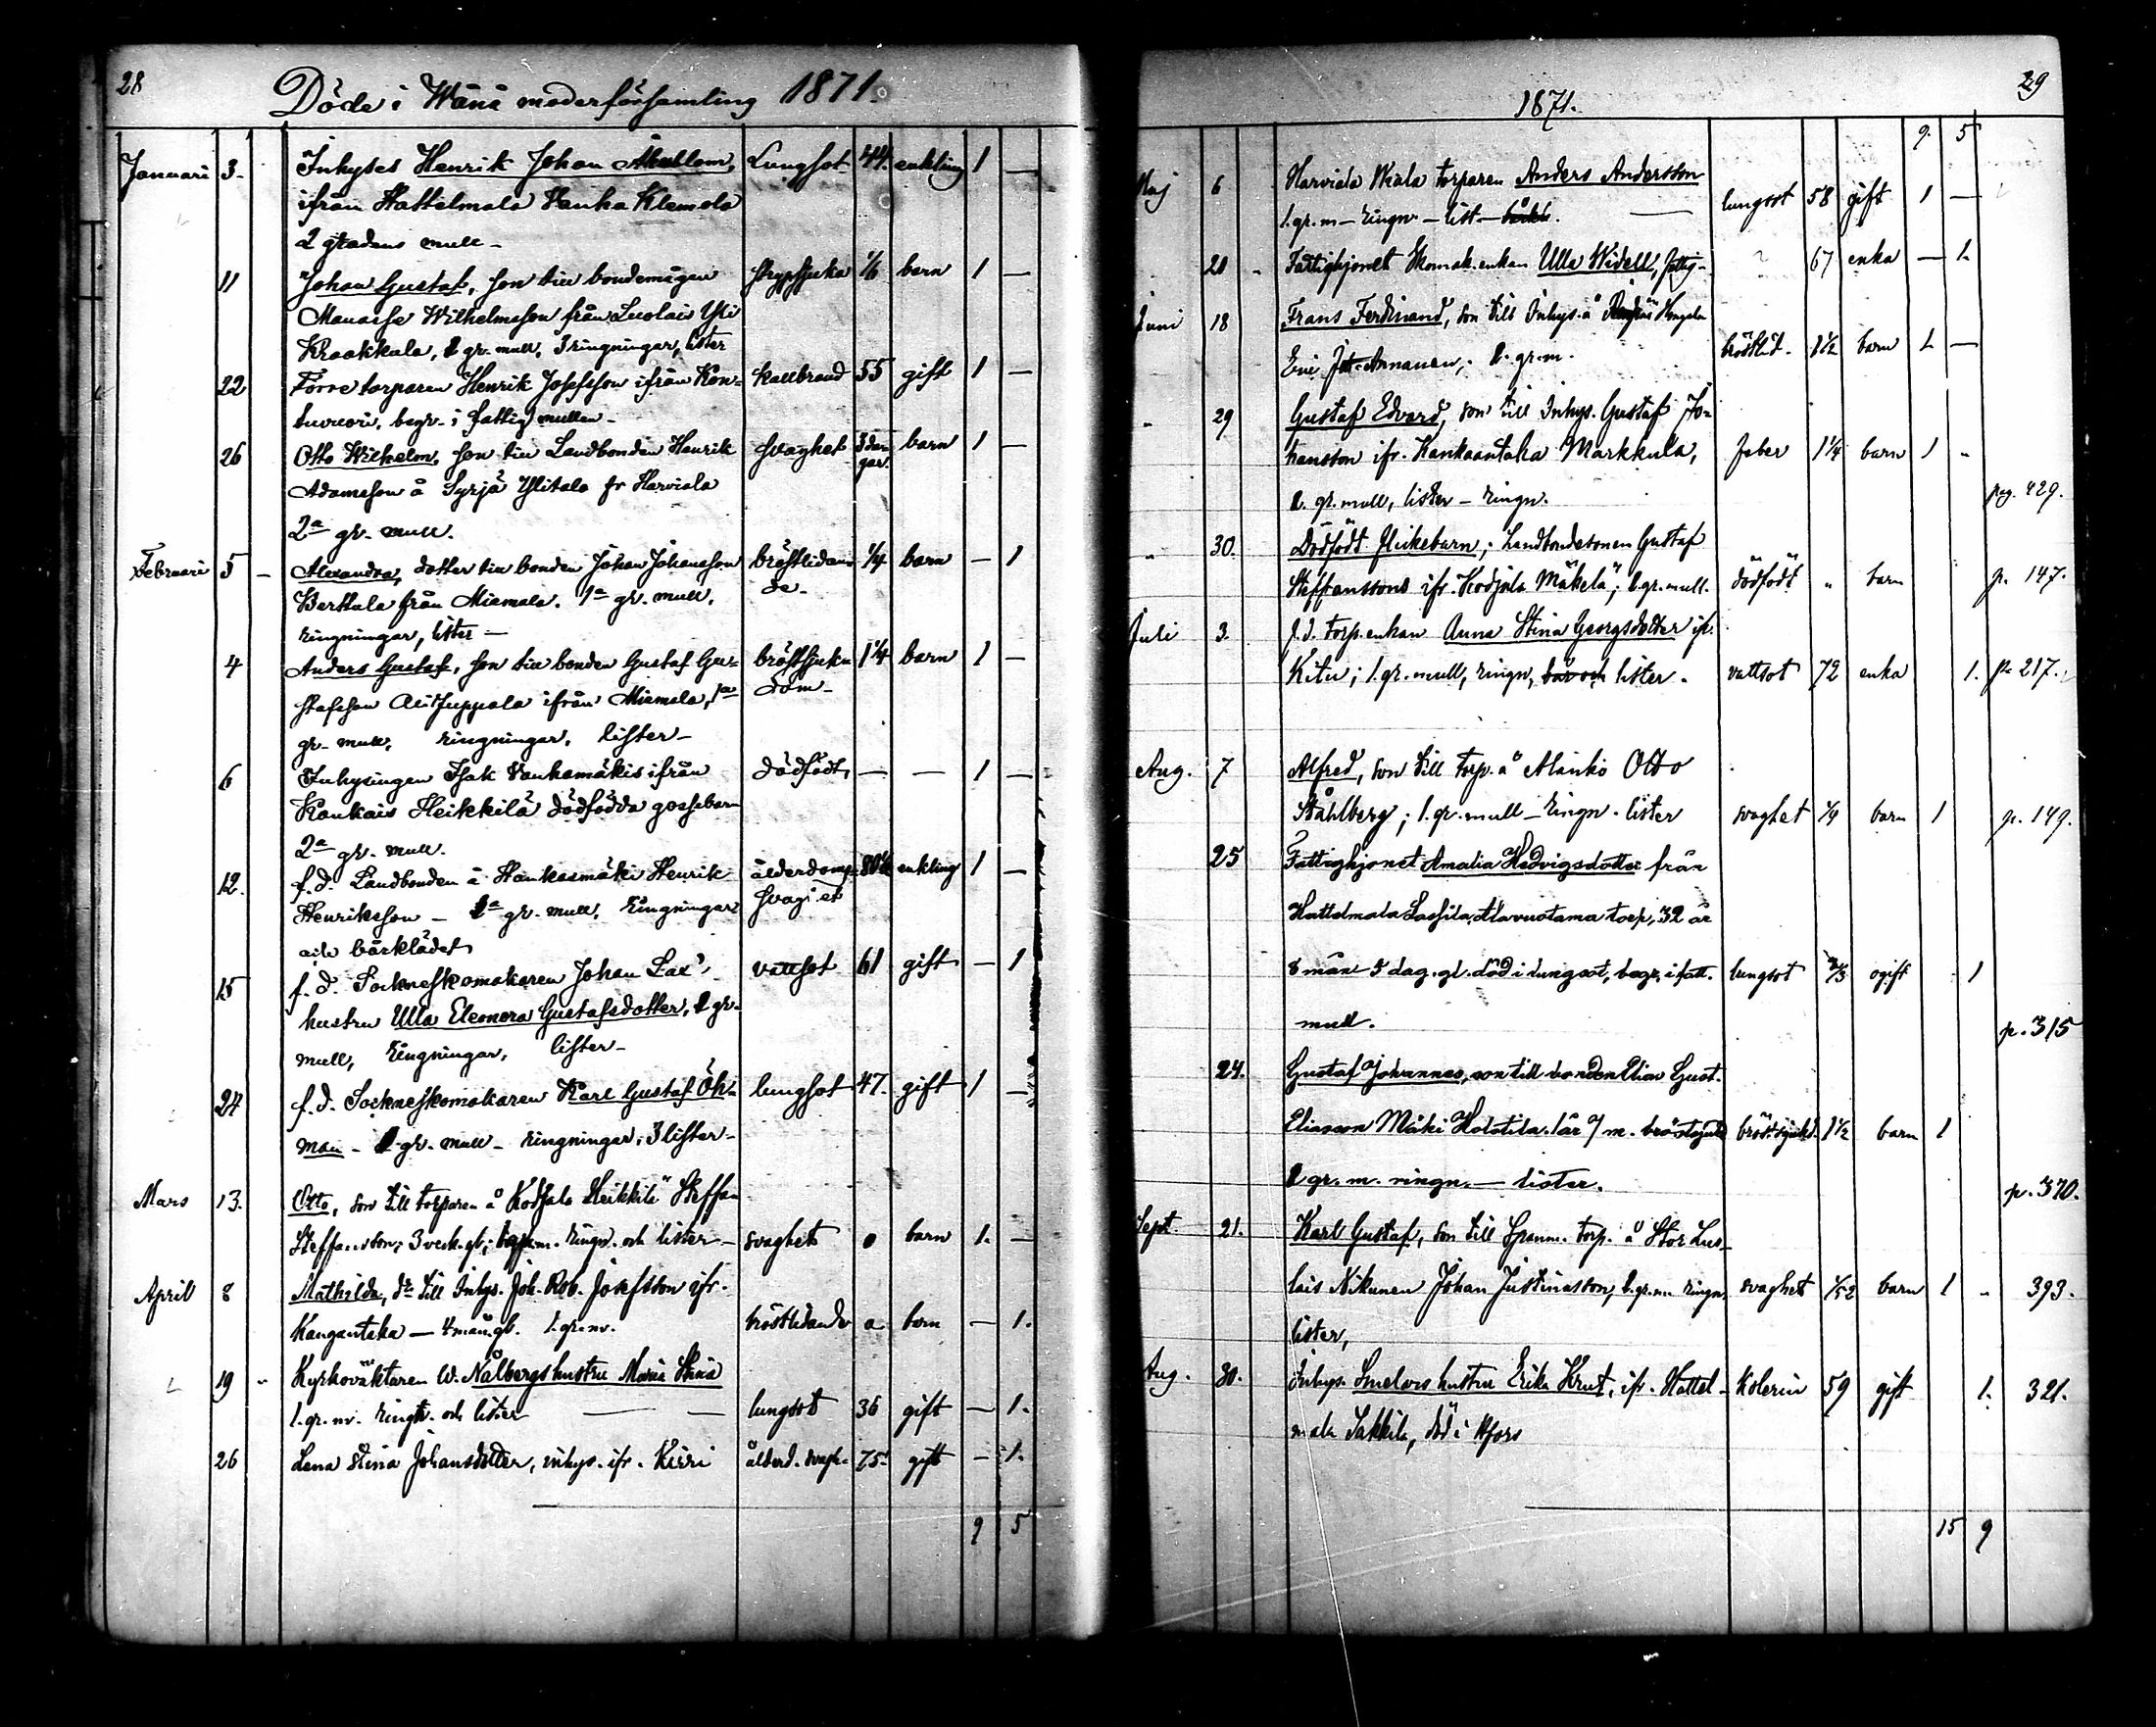 28
Döde i Wånå moderförsamling 1871.
Januari 3. Inhyses Henrik Johan Lungsot 44. enkling 1 —
ifrån Hattelmala Vanha Klemola
2 gradens mull —
11 Johan Gustaf, son till bondemågen strypsjuka 1/6 barn 1 —
Manasse Wilhelmsson från Luolais Yli
Kraakkala, 2 gr. mull, 3 ringningar, lister
22 Förre torparen Henrik Josefsson ifrån kallbrand 55 gift 1 —
begr. i fattig mullen —
26 Otto Wilhelm, son till Landbonden Henrik svaghet 3 da- barn 1 —
Adamsson å Syrjä Ylitalo fr Harviala gar
2a gr. mull.
Februari 5 — Alexandra, dotter till bonden Johan Johansson bröstlidan- 1/4 barn — 1
Berttula från Miemala. 1a gr. mull, de.
ringningar, lister —
4 Anders Gustaf, son till bonden Gustaf Gu- bröstsjuk- 1 1/4 barn 1 —
stafsson Alijuppala ifrån Miemala, 1a dom —
gr. mull, ringningar, lister —
6 Inhysingen Isak Vanhamäkis ifrån dödfödt — — 1 —
Kankais Heikkilä dödfödda gossebarn
2a gr. mull.
12. f. d. Landbonden å Hankasmäki Henrik ålderdoms- enkling 1 —
Henriksson — gr. mull, ringningar svaghet
och bårklädet
15 f. d. Sockneskomakaren Johan Lax' vattsot 61 gift — 1
hustru Ulla Eleonora Gustafsdotter, 2 gr.
mull, ringningar, lister —
24 f. d. Sockneskomakaren Karl Gustaf Öh- lungsot 47. gift 1 —
man — 2 gr. mull — ringningar, 3 lister —
Mars 13. Otto, son till torparen å Kodjala Heikkilä Steffan
Steffansson; 3 veck. gl; ringn. och lister — svaghet 0 barn 1. —
April 8 Mathilda, dr till Inhys. Joh. Rob. Josefsson ifr.
Kangantaka — 4 mån. gl. 1. gr. m. bröstlidande 0 barn — 1.
19 Kyrkoväktaren W. Nålbergs hustru Maria Stina
1. gr. m. ringn. och lister — lungsot 36 gift — 1.
26 Lena Stina Johansdotter, inhys. ifr. Kirri ålderd. svagh. 75. gift — 1.
9 5
29
1871.
9. 5
Maj 6 Harviala Wiala torparen Anders Andersson
1. gr. m — ringn — list — lungsot 58 gift 1 —
20 Fattighjonet Skomak. enkan Ulla Widell, fattig- 67 enka — 1.
Juni 18 Frans Ferdinand, son till Inhys. å
gr. m. bröstlid. 1 1/2 barn 1 —
29 Gustaf Edvard, son till Inhys. Gustaf Jo-
hansson ifr. Kankaantaka Markkula, feber 1 1/4 barn 1
gr. mull, lister — ringn. pag. 429.
30. Dödfödt flickebarn; Landbondesonen Gustaf
Steffanssons ifr. Kodjala Mäkelä; gr. mull. dödfödt barn p. 147.
Juli 3. f. d. torp. enkan Anna Stina Georgsdotter ifr.
Kitu; 1. gr. mull, ringn, lister. vattsot 72 enka 1. p. 217.
Aug. 7 Alfred, son till torp. å Alanko Otto
Ståhlberg; 1. gr. mull — ringn. lister svaghet 1/4 barn 1 p. 149.
25 Fattighjonet Amalia Hedvigsdotter från
Hattelmala Lassila Alavuotama torp, 32 år
8 mån 5 dag. gl. död i lungsot, begr. i fatt. lungsot ogift 1
mull. p. 315
24. Gustaf Johannes, son till bonden Elias Gust.
Eliasson Mäki Holstila. 1 år 7 m. bröstsjukd 1 1/2 barn 1
gr. m. ringn. — lister. p. 370.
Sept. 21. Karl Gustaf, son till Spanm. torp. å Stor Luo-
lais Nikunen Johan Justinasson, gr. m. ringn, svaghet 1/52 barn 1 393.
lister,
Aug. 30. Inhys. hustru Erika Krut, ifr. Hattel- kolerin 59 gift 1. 321.
mala Sakkila, död i Hfors
15 9